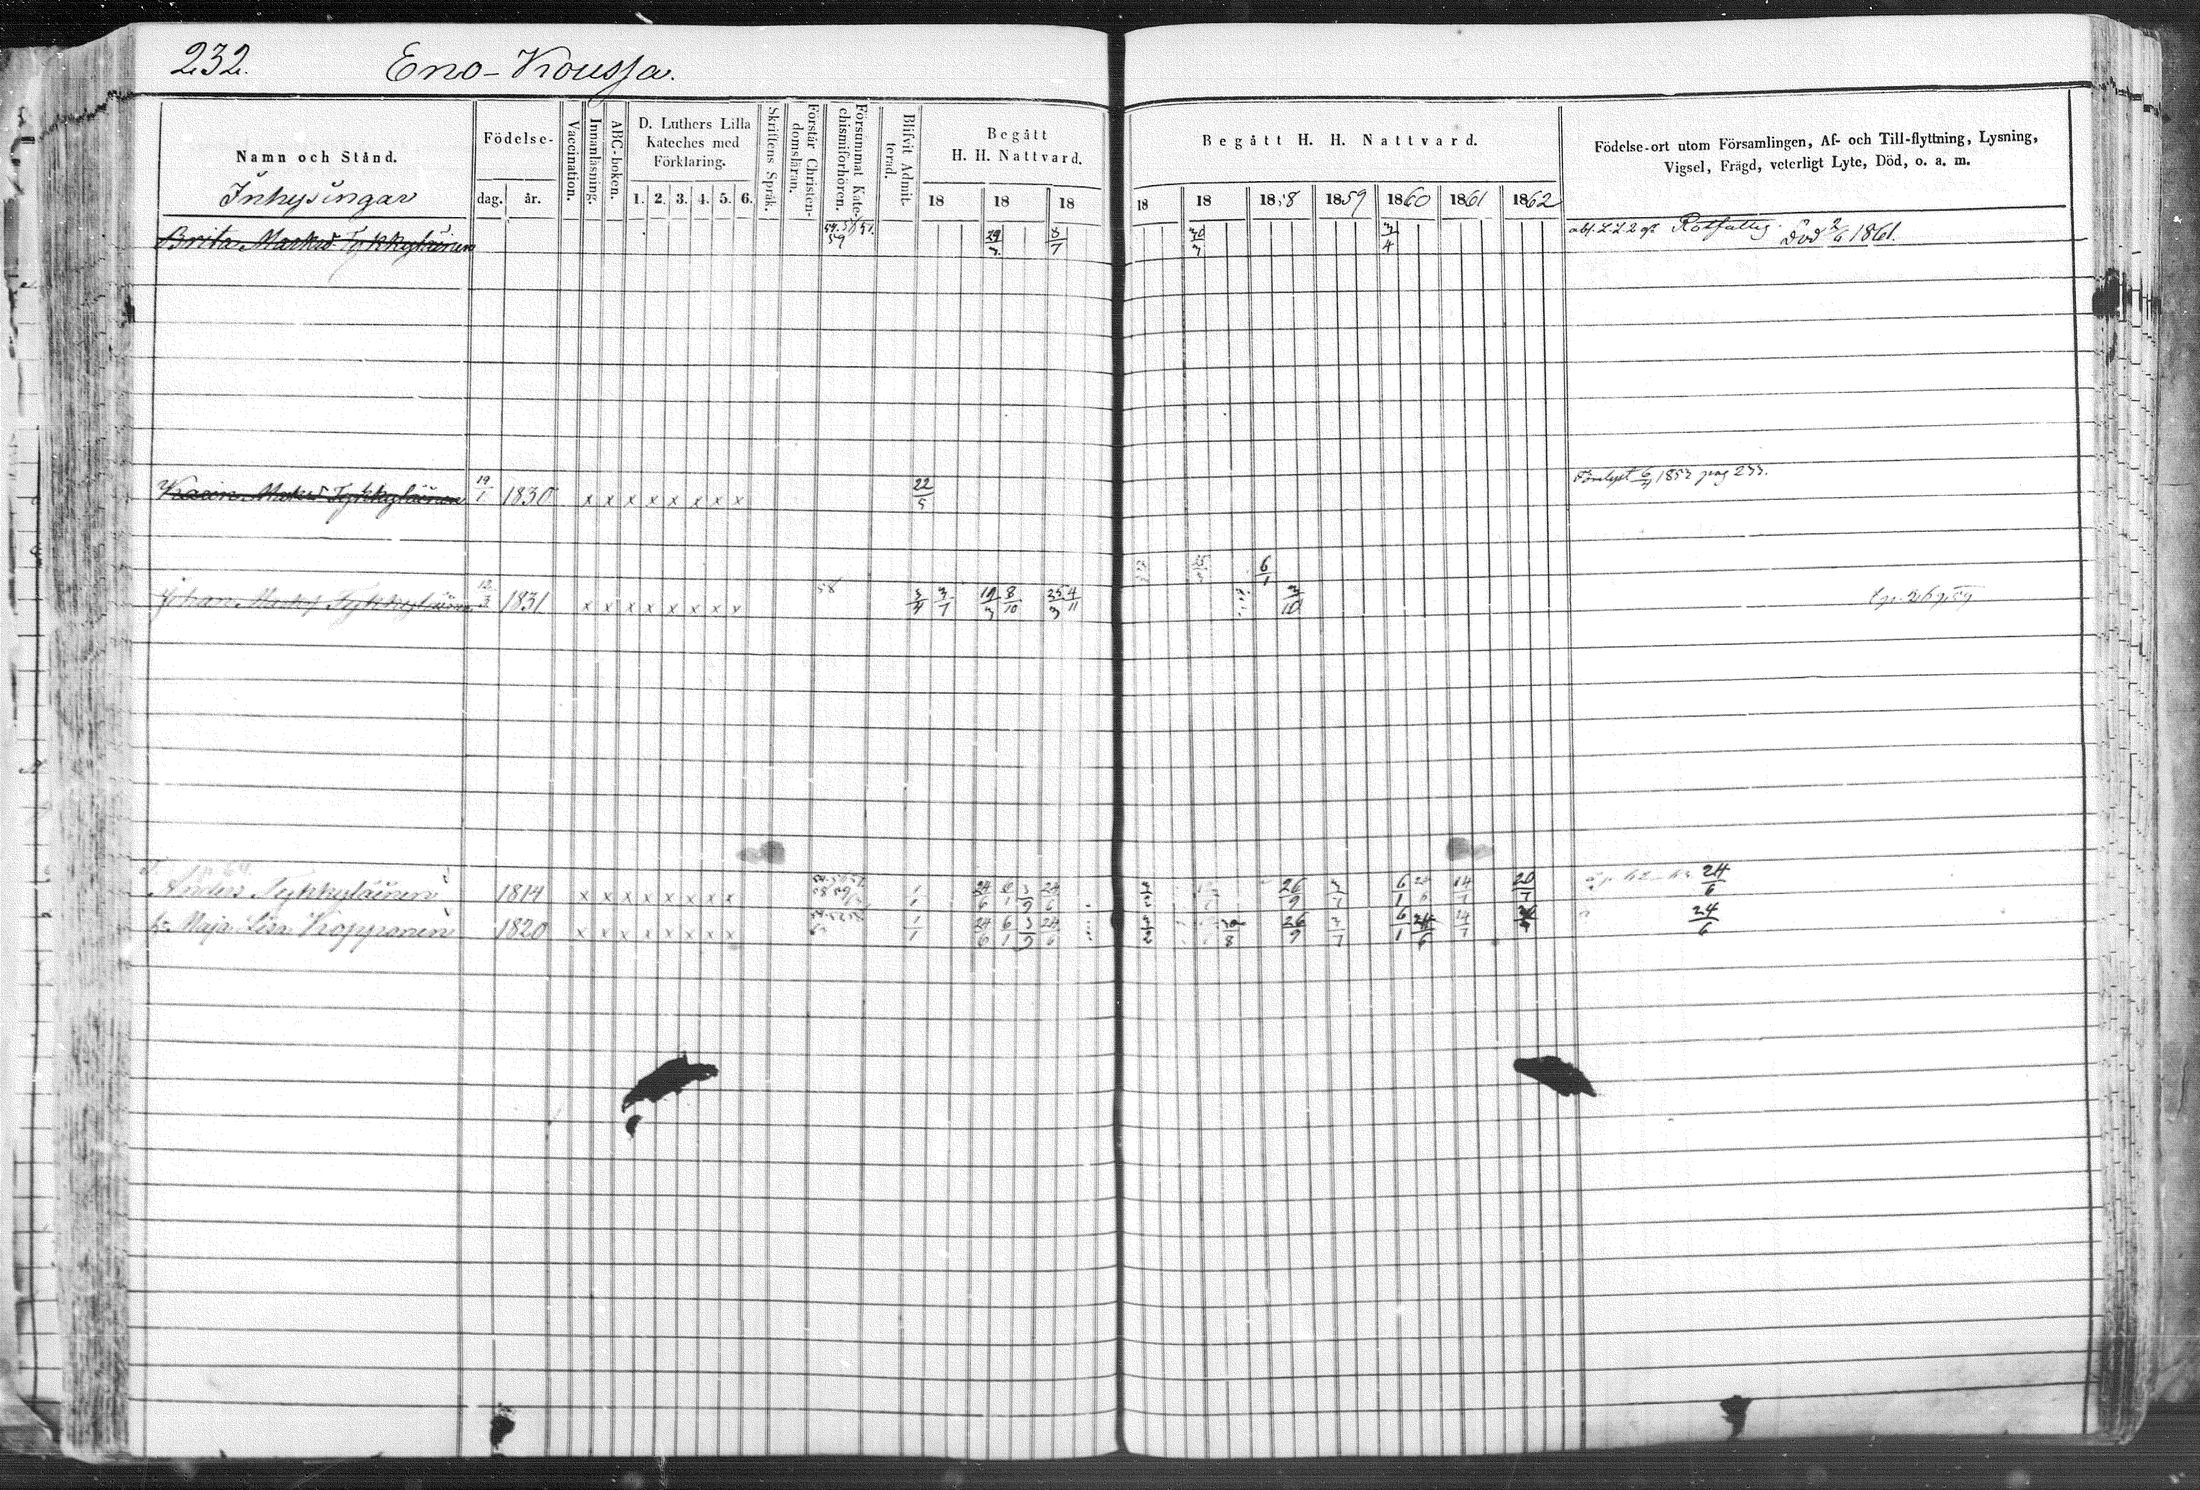 232. Eno-Koussa.
Namn och Stånd.
Inhysingar
Födelse-
dag. år.
Vaccination.
Innanläsning.
ABC-boken.
D. Luthers Lilla
Kateches med
Förklaring.
1. 2. 3. 4. 5. 6.
Skriftens Språk.
Förstår Christen-
domsläran.
Försummat Kate-
chismiförhören.
Blifvit Admit-
terad.
Begått
H. H. Nattvard.
18 18 18
Begått H. H. Nattvard.
18 18 1858 1859 1860 1861 1862
Födelse-ort utom Församlingen, Af- och Till-flyttning, Lysning,
Vigsel, Frägd, veterligt Lyte, Död, o. a. m.
Brita Markd Tykkyläinen 59 29/3 8/7 30/3 3/4 Rotfattig. Död 2/6 1861.
Karin Markd Tykkyläinen 19/1 1830 x x x x x x x x 22/5 6/4 1853 pag 233.
6/1
Johan Markf Tykkyläinen 1831 x x x x x x x x 58 3/4 3/7 19/3 8/10 25/3 4/11 3/10
Anders Tykkyläinen 1814 x x x x x x x x 1/1 24/6 3/9 24/6 26/9 6/1 14/7 20/7 24/6
h. Maja Lisa Kopponen 1820 x x x x x x x x 1/1 24/6 6/1 3/9 24/6 3/2 26/9 3/7 6/1 24/6 14/7 24/6